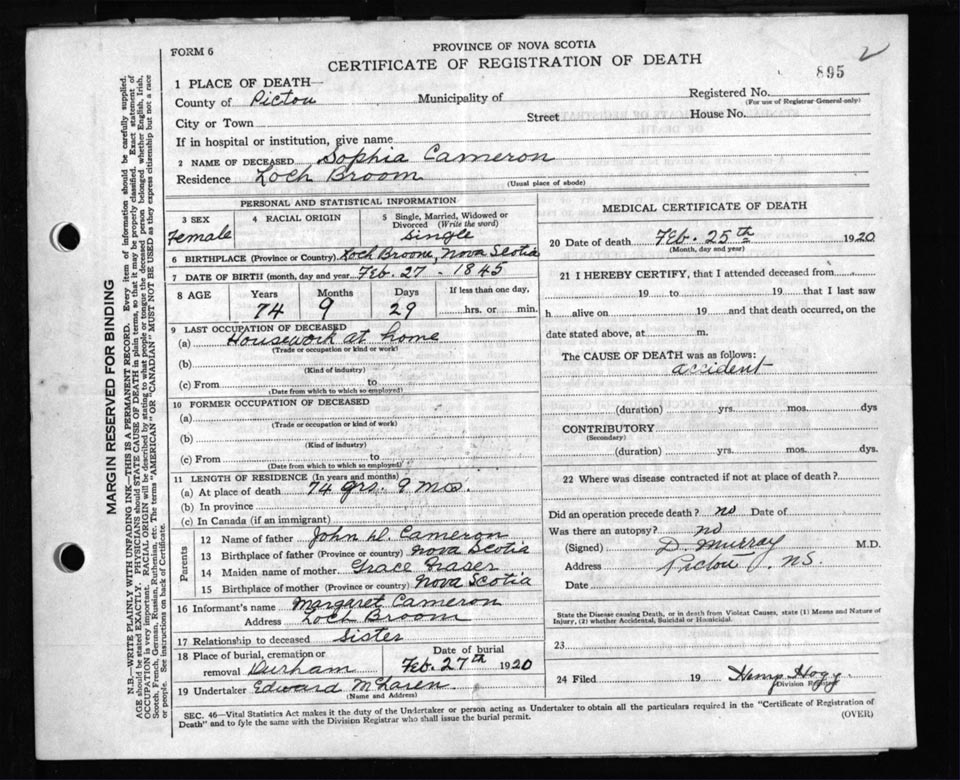 FORM 6
PROVINCE OF NOVA SCOTIA
CERTIFICATE OF REGISTRATION OF DEATH
2
895
1 PLACE OF DEATH—
County of Pictou Municipality of
Registered No.
(For use of Registrar General only)
City or Town Street House No.
If in hospital or institution, give name
2 NAME OF DECEASED Sophia Cameron
Residence Loch Broom
(Usual place of abode)
PERSONAL AND STATISTICAL INFORMATION
3 SEX
Female
4 RACIAL ORIGIN
5 Single, Married, Widowed or
Divorced (Write the word)
Single
6 BIRTHPLACE (Province or Country) Loch Broom, Nova Scotia
7 DATE OF BIRTH (month, day and year) Feb. 27 - 1845
8 AGE
Years Months Days
74 9 29
If less than one day,
hrs. or min.
9 LAST OCCUPATION OF DECEASED
(a) Housework at home
(Trade or occupation or kind of work)
(b)
(Kind of industry)
(c) From to
(Date from which to which so employed)
10 FORMER OCCUPATION OF DECEASED
(a)
(Trade or occupation or kind of work)
(b)
(Kind of industry)
(c) From to
(Date from which to which so employed)
11 LENGTH OF RESIDENCE (In years and months)
(a) At place of death 74 yrs. 9 mos.
(b) In province
(c) In Canada (if an immigrant)
Parents
12 Name of father John D. Cameron
13 Birthplace of father (Province or country) Nova Scotia
14 Maiden name of mother Grace Fraser
15 Birthplace of mother (Province or country) Nova Scotia
16 Informant's name Margaret Cameron
Address Loch Broom
17 Relationship to deceased Sister
18 Place of burial, cremation or
removal Durham
Date of burial
Feb. 27th 1920
19 Undertaker Edward McLaren
(Name and Address)
MEDICAL CERTIFICATE OF DEATH
20 Date of death Feb. 25th 1920
(Month, day and year)
21 I HEREBY CERTIFY, that I attended deceased from
19 to 19 that I last saw
h alive on 19 and that death occurred, on the
date stated above, at m.
The CAUSE OF DEATH was as follows:
accident
(duration) yrs. mos. dys
CONTRIBUTORY
(Secondary)
(duration) yrs. mos. dys.
22 Where was disease contracted if not at place of death?
Did an operation precede death? no Date of
Was there an autopsy? no
(Signed) D. Murray M.D.
Address Pictou, N.S.
Date
State the Disease causing Death, or in death from Violent Causes, state (1) Means and Nature of
Injury, (2) whether Accidental, Suicidal or Homicidal.
23
24 Filed 19 Hogg
Division Registrar
SEC. 46—Vital Statistics Act makes it the duty of the Undertaker or person acting as Undertaker to obtain all the particulars required in the "Certificate of Registration of
Death" and to fyle the same with the Division Registrar who shall issue the burial permit.
(OVER)
MARGIN RESERVED FOR BINDING
N.B.—WRITE PLAINLY WITH UNFADING INK—THIS IS A PERMANENT RECORD. Every item of information should be carefully supplied.
AGE should be stated EXACTLY. PHYSICIANS should STATE CAUSE OF DEATH in plain terms, so that it may be properly classified. Exact statement of
OCCUPATION is very important. RACIAL ORIGIN will be described by stating to what people or tongue the deceased person belonged whether English, Irish,
Scotch, French, German, Russian, Ruthenian, etc. The terms "AMERICAN" or "CANADIAN" MUST NOT BE USED as they express citizenship but not a race
or people. See instructions on back of Certificate.